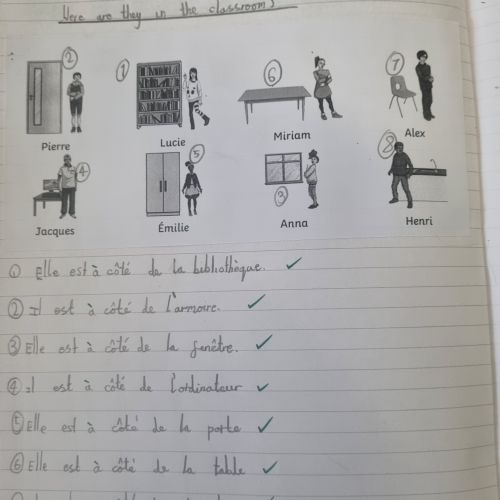 Where are they in the classroom?
2
1
6
7
Pierre
Lucie
Miriam
Alex
4
5
3
8
Jacques
Émilie
Anna
Henri
① Elle est à côté de la bibliothèque. ✓
② Il est à côté de l'armoire. ✓
③ Elle est à côté de la fenêtre. ✓
④ Il est à côté de l'ordinateur ✓
⑤ Elle est à côté de la porte ✓
⑥ Elle est à côté de la table ✓